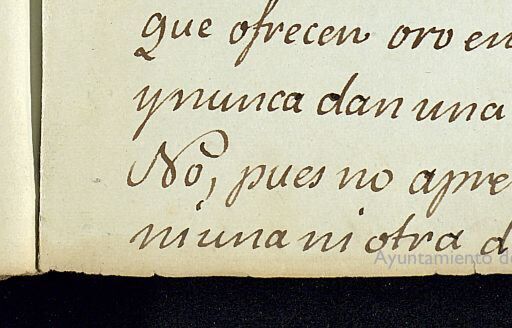 que ofrecen oro en
ynunca dan una
No, pues no apre
ni una ni otra d
Ayuntamiento de